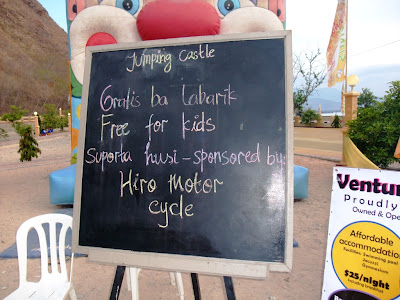 Jumping Castle
Gratis ba labarik
Free for kids
Suporta husi - sponsored by:
Hiro Motor
cycle
Ventur
Proudly
Owned & Ope
Affordable
accommodation
Facilities: Swimming pool
Gymnasium
$25/night